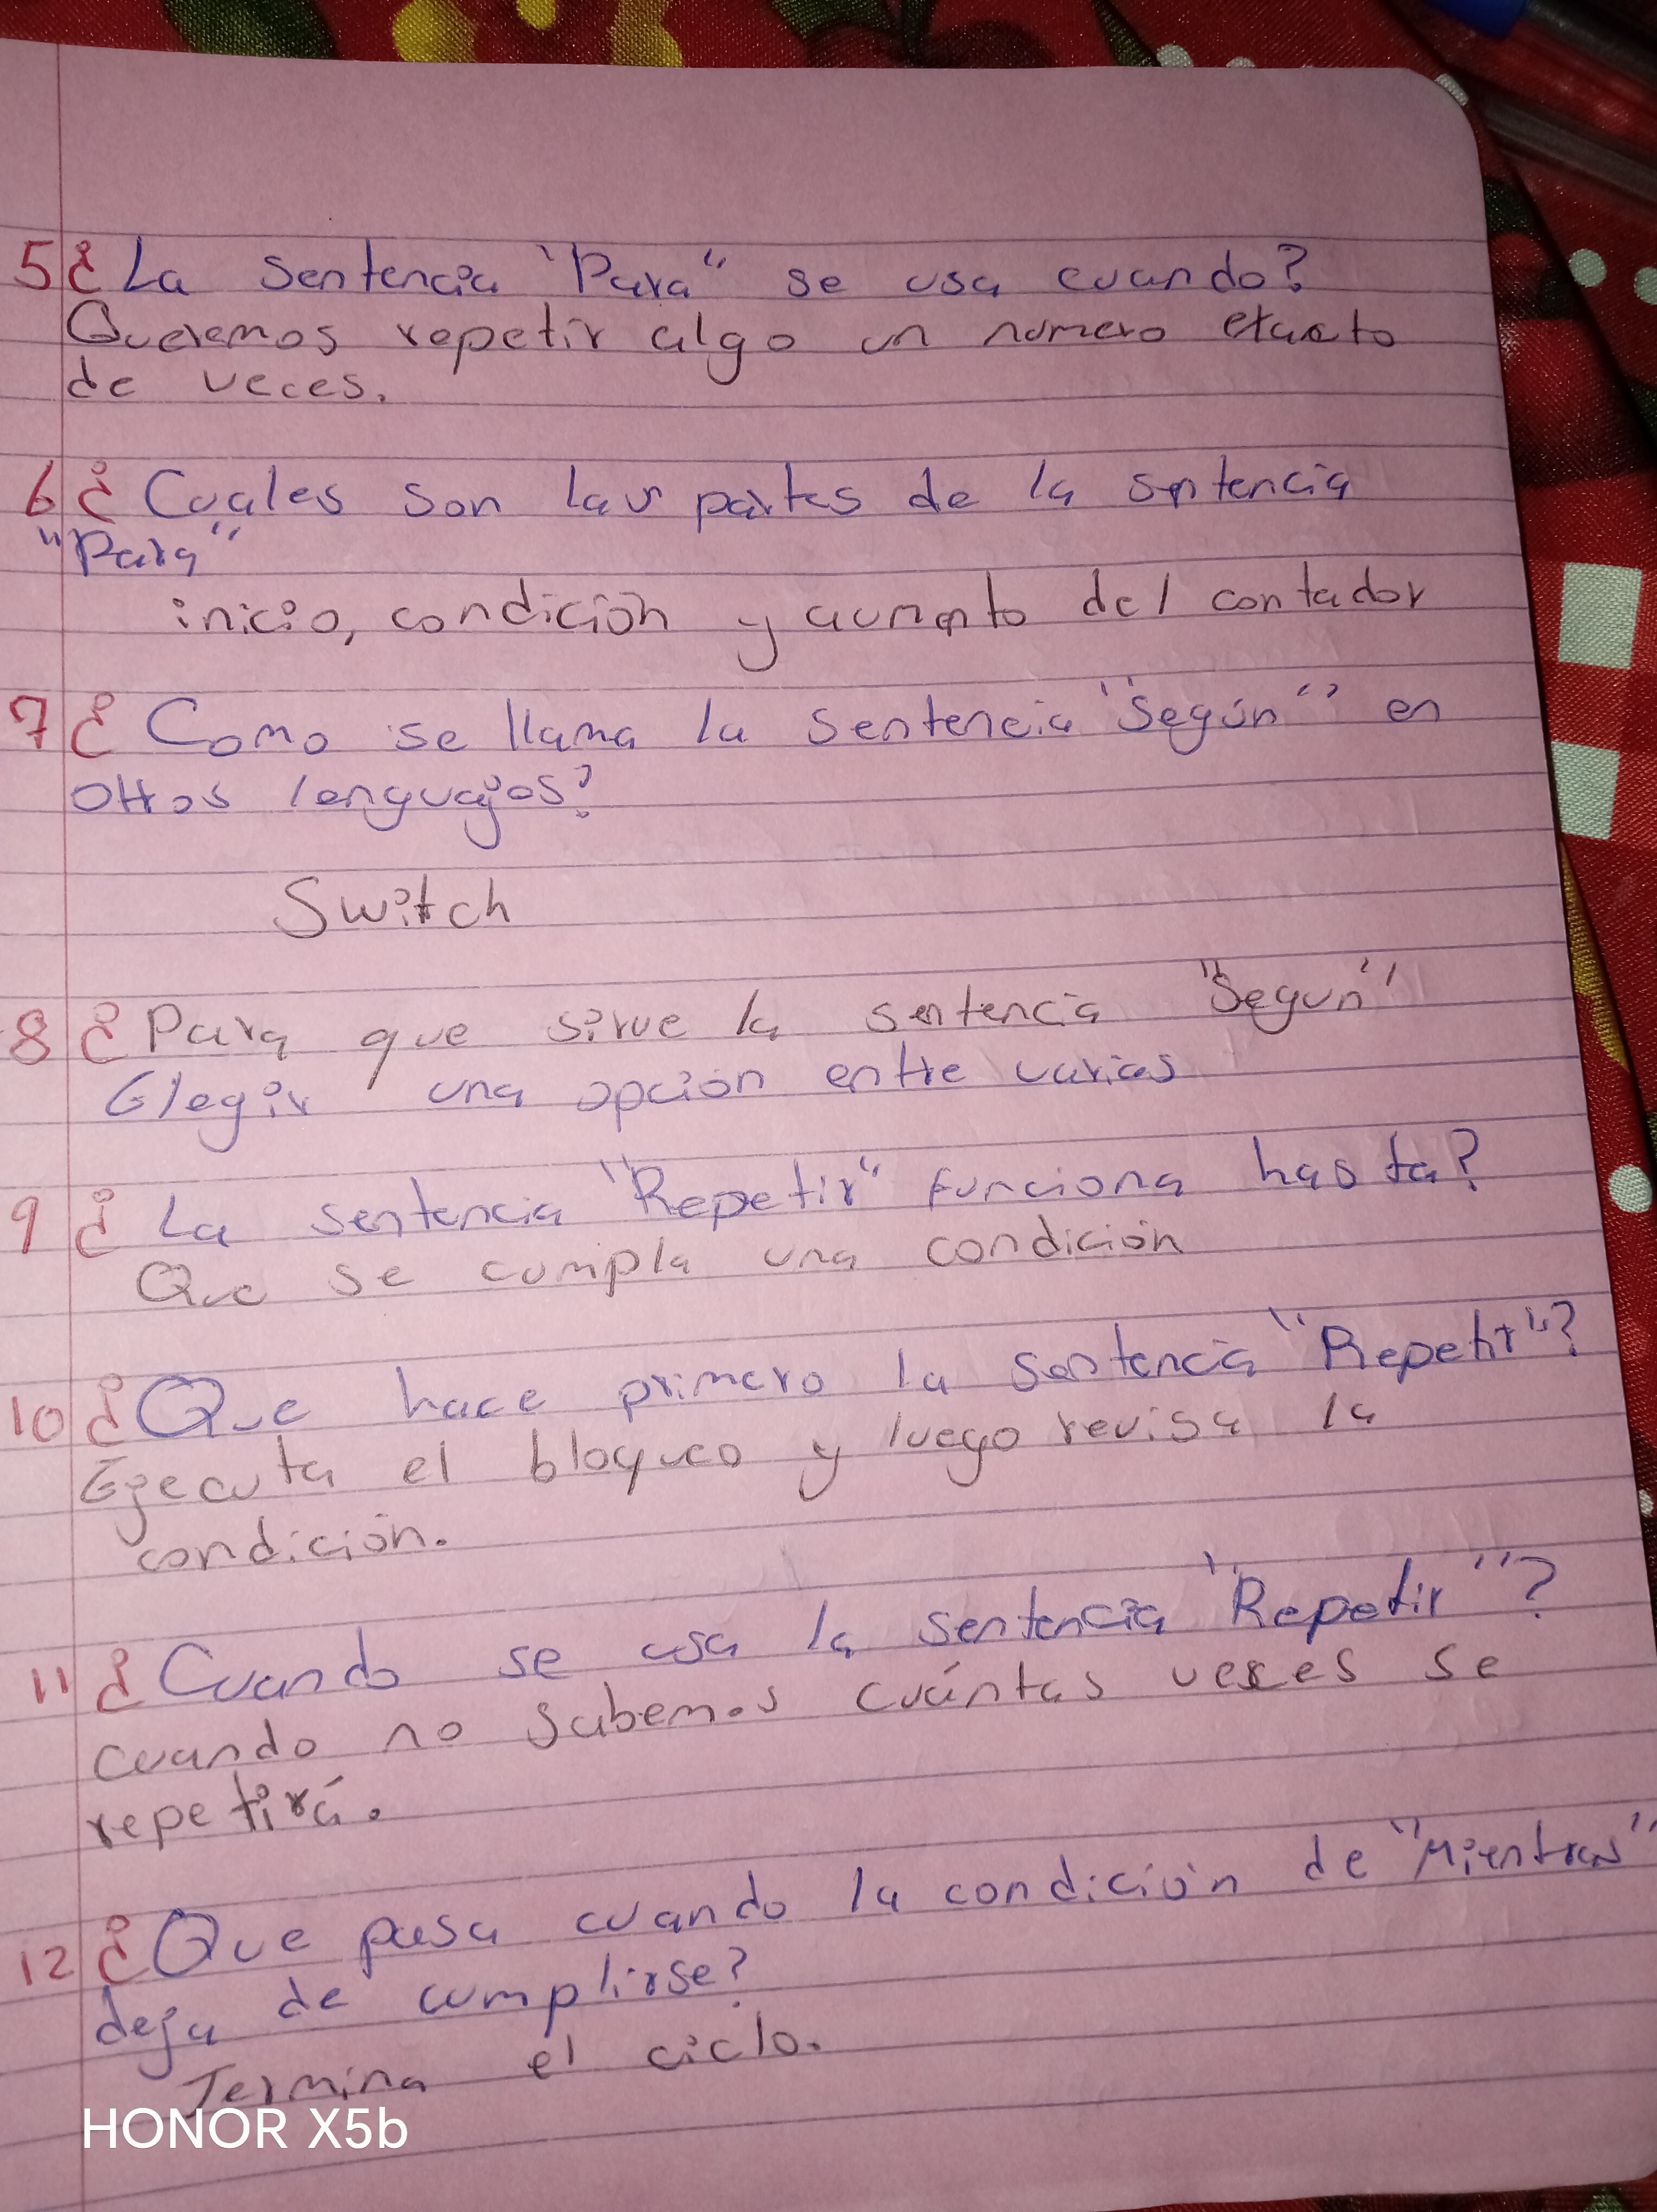 5 ¿La sentencia "Para" se usa cuando?
Queremos repetir algo un numero exacto
de veces.
6 ¿Cuales son las partes de la sentencia
"Para"
inicio, condición y aumento del contador
7 ¿Como se llama la sentencia "Según" en
otros lenguajes?
Switch
8 ¿Para que sirve la sentencia "Segun"
Elegir una opción entre varias
9 ¿La sentencia "Repetir" funciona hasta?
Que se cumpla una condición
10 ¿Que hace primero la sentencia "Repetir"?
Ejecuta el bloqueo y luego revisa la
condición.
11 ¿Cuando se usa la sentencia "Repetir"?
cuando no sabemos cuántas veces se
repetirá.
12 ¿Que pasa cuando la condición de "Mientras"
deja de cumplirse?
Termina el ciclo.
HONOR X5b